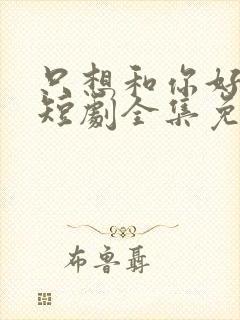 只想和你好
短劇全集免
布鲁聂